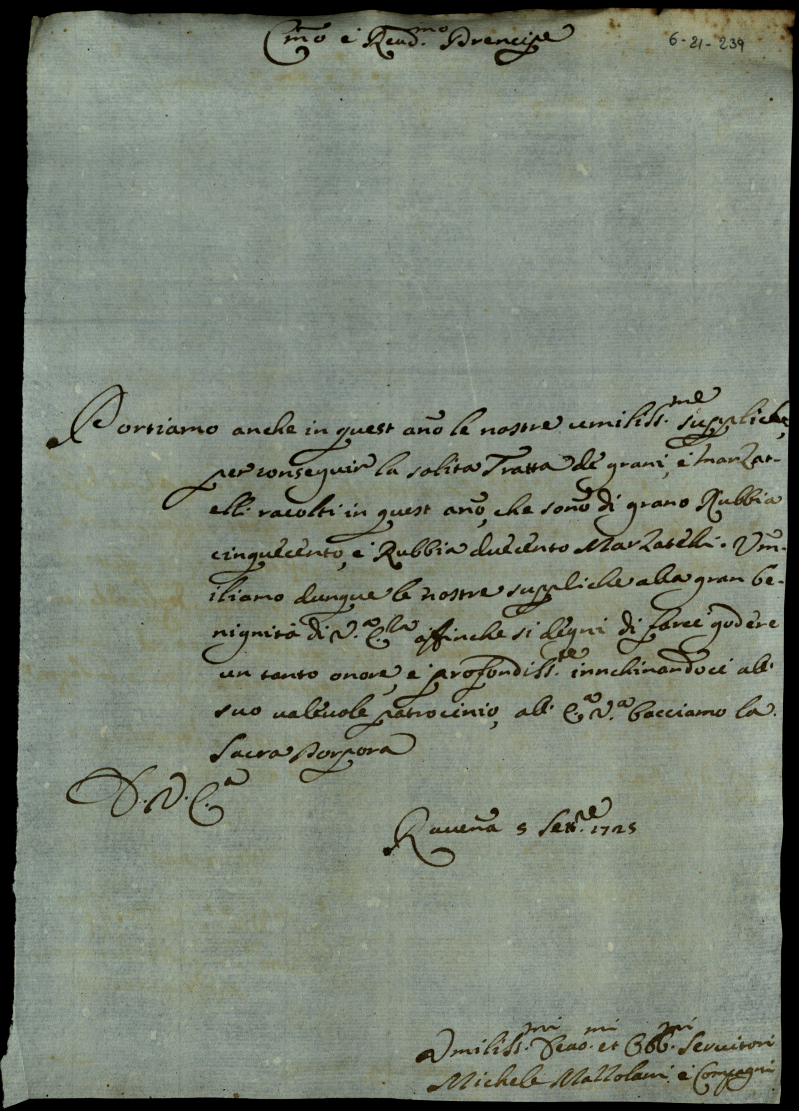 Em̃o e Reud.mo Prencipe
6-21-239
Portiamo anche in quest año le nostre umiliss.me suppliche,
per conseguir la solita Tratta de grani, e Marzat-
elli racolti in quest año, che sono di grano Rubbia
cinquecento, e Rubbia duecento Marzatelli. Vm̃-
iliamo dunque le nostre suppliche alla gran be-
nignità di V.a E.za affinche si degni di farce godere
un tanto onore, e profondiss.te innchinandoci all'
suo ualeuole patrocinio, all' E.a V.a bacciamo la
Sacra Porpora
D. V. E.a
Raueña 5 Sett.re 1725
Vmiliss.mi Deuo.mi et Obb.mi Seruitori
Michele Mazzolani e Compagni